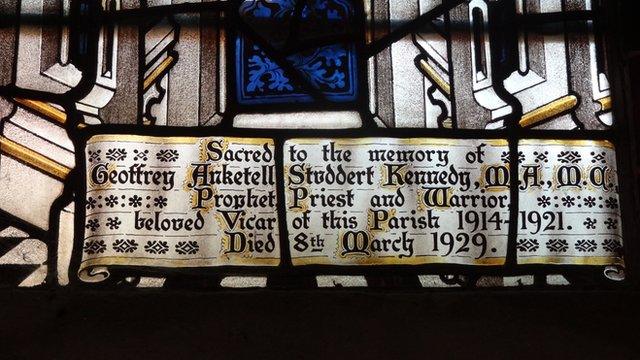 Sacred to the memory of
Geoffrey Anketell Studdert Kennedy, M.A., M.C.,
Prophet, Priest and Warrior,
beloved Vicar of this Parish 1914-1921.
Died 8th March 1929.